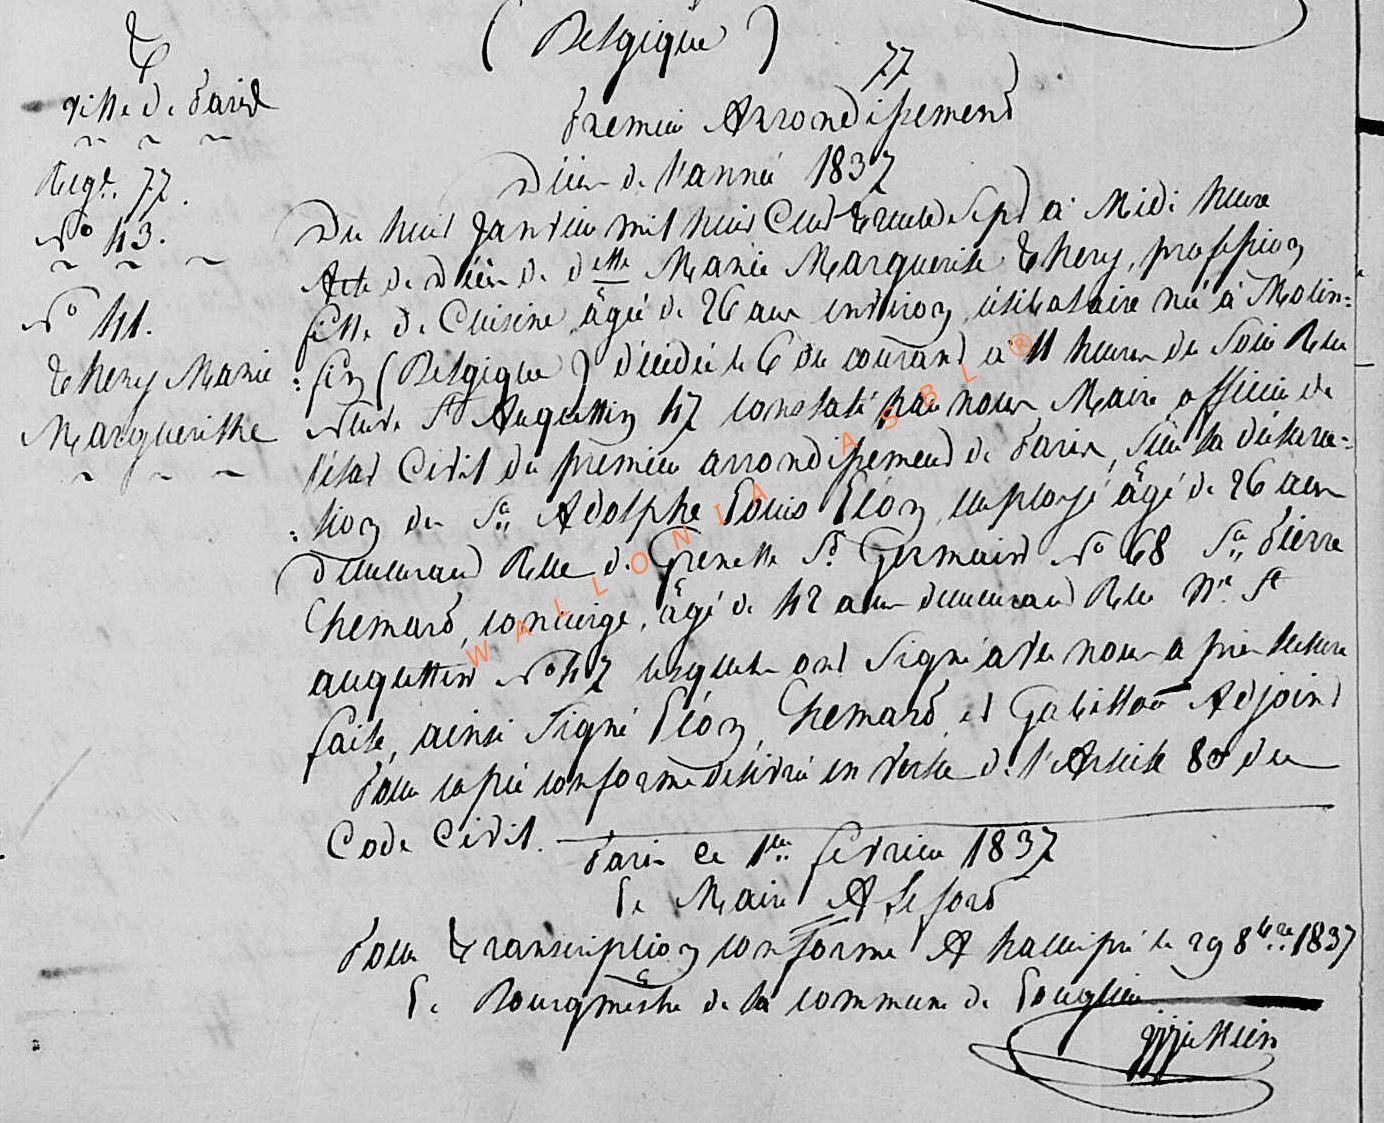 (Belgique)
77
ville de Paris
Premier Arrondissement
Décès de l'année 1837
Regre. 77.
N° 43.
N° 41.
Thery Marie
Marguerithe
Du huit Janvier mil huit Cent trente Sept à Midi heure
Acte de décès de delle Marie Marguerite Thery, profession
fille de Cuisine, âgée de 26 ans environ, célibataire née à Molin=
=fin (Belgique) décédée le 6 du courant à 11 heures du Soir Rue
neuve St Augustin 47 constaté par nous Maire, officier de
l'état Civil du premier arrondissement de Paris, Sur la déclara=
=tion des Srs Adolphe Louis Léon, employé âgé de 26 ans
demeurant Rue de Grenelle St Germain N° 68 Sr Pierre
Chemard, concierge, âgé de 42 ans demeurant Rue Nve St
augustin N° 47 lesquels ont Signé avec nous après lecture
faite, ainsi Signé Léon, Chemard, et Adjoint
Pour copie conforme délivrée en vertu de l'Article 80 du
Code Civil.
Paris ce 1er février 1837
Le Maire A Lefort
Pour transcription conforme A le 29 8bre 1837
Le Bourgmestre de la commune de Louglier
WALLONIA ASBL ®